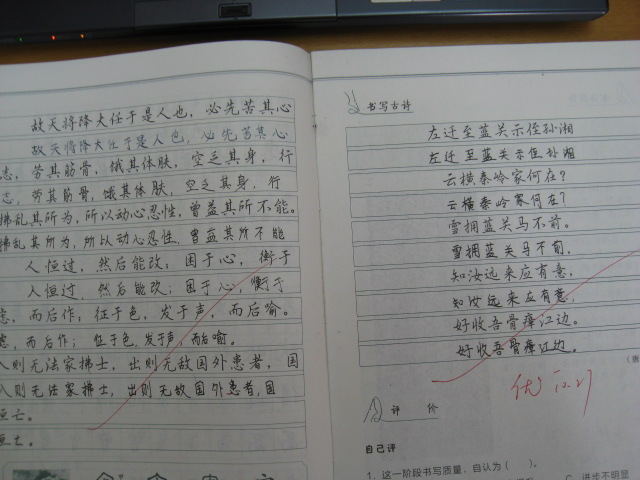 故天将降大任于是人也，必先苦其心
故天将降大任于是人也，必先苦其心
志，苦其筋骨，饿其体肤，空乏其身，行
志，劳其筋骨，饿其体肤，空乏其身，行
拂乱其所为，所以动心忍性，曾益其所不能。
拂乱其所为，所以动心忍性，曾益其所不能
人恒过，然后能改；困于心，衡于
人恒过，然后能改；困于心，衡于
虑，而后作；征于色，发于声，而后喻。
虑，而后作；征于色，发于声，而后喻。
入则无法家拂士，出则无敌国外患者，国
入则无法家拂士，出则无敌国外患者，国
恒亡。
恒亡。
书写古诗
左迁至蓝关示侄孙湘
左迁至蓝关示侄孙湘
云横秦岭家何在？
云横秦岭家何在？
雪拥蓝关马不前。
雪拥蓝关马不前。
知汝远来应有意，
知汝远来应有意，
好收吾骨瘴江边。
好收吾骨瘴江边。
优 10.27
评 价
自己评
1、这一阶段书写质量，自认为（ ）。
C、进步不明显